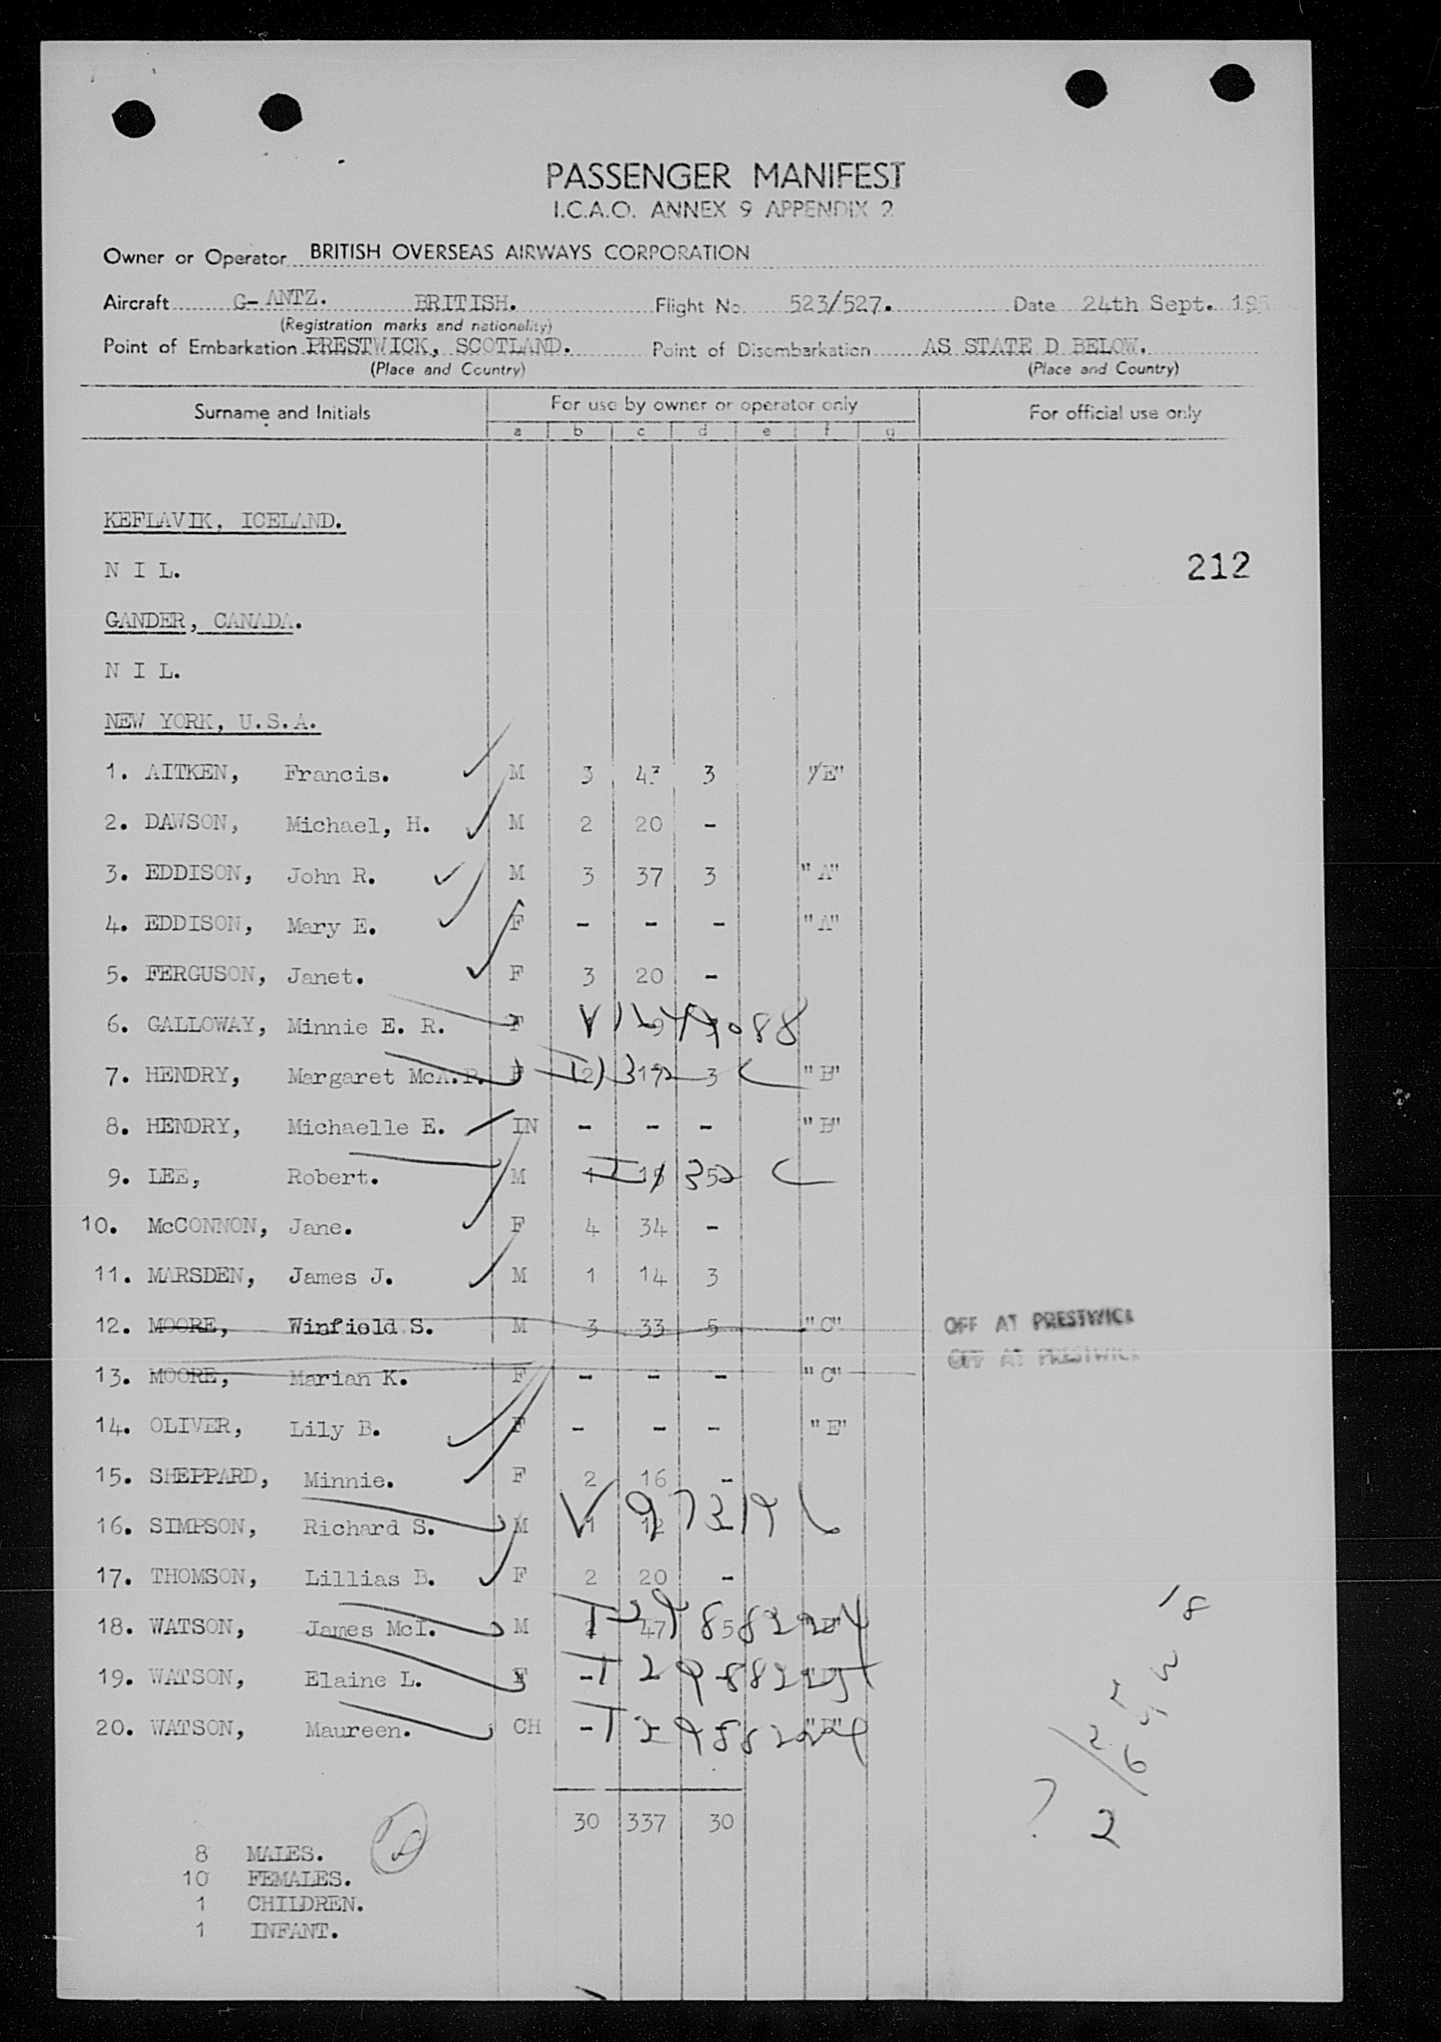 PASSENGER MANIFEST
I.C.A.O. ANNEX 9 APPENDIX 2
Owner or Operator BRITISH OVERSEAS AIRWAYS CORPORATION
Aircraft G-ANTZ. BRITISH. Flight No. 523/527. Date 24th Sept. 195
(Registration marks and nationality)
Point of Embarkation PRESTWICK, SCOTLAND. Point of Disembarkation AS STATE D BELOW.
(Place and Country) (Place and Country)
Surname and Initials For use by owner or operator only For official use only
a b c d e f g
KEFLAVIK, ICELAND.
N I L. 212
GANDER, CANADA.
N I L.
NEW YORK, U.S.A.
1. AITKEN, Francis. M 3 43 3 "E"
2. DAWSON, Michael, H. M 2 20 -
3. EDDISON, John R. M 3 37 3 "A"
4. EDDISON, Mary E. F - - - "A"
5. FERGUSON, Janet. F 3 20 -
6. GALLOWAY, Minnie E. R. F
7. HENDRY, Margaret McA.R. F 2 3 "B"
8. HENDRY, Michaelle E. IN - - - "B"
9. LEE, Robert. M
10. McCONNON, Jane. F 4 34 -
11. MARSDEN, James J. M 1 14 3
12. MOORE, Winfield S. M 3 33 5 "C" OFF AT PRESTWICK
13. MOORE, Marian K. F - - - "C" OFF AT PRESTWICK
14. OLIVER, Lily B. F - - - "E"
15. SHEPPARD, Minnie. F 2 16 -
16. SIMPSON, Richard S. M 1 12
17. THOMSON, Lillias B. F 2 20 -
18. WATSON, James McI. M 47
19. WATSON, Elaine L. F -
20. WATSON, Maureen. CH -
30 337 30
8 MALES.
10 FEMALES.
1 CHILDREN.
1 INFANT.